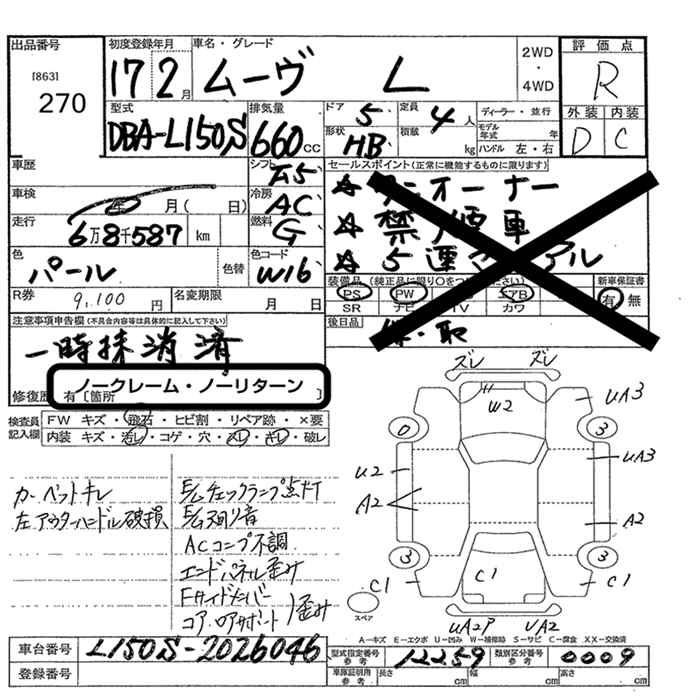 出品番号
[863]
270
初度登録年月
17 2月
車名・グレード
ムーヴ L
2WD
・
4WD
評価点
R
外装 内装
D C
型式
DBA-L150S
排気量
660cc
ドア 5
定員 4人
形状 HB
積載 kg
ディーラー・並行
モデル年式 年
ハンドル 左・右
車歴
シフト F5
セールスポイント(正常に機能するものに限ります)
☆ワンオーナー
☆禁煙車
☆5連
車検 月(日)
冷房 AC
走行 6万8千587km
燃料 G
色 パール
色替
色コード W16
装備品(純正品に限り○をつけ
新車保証書
有・無
PS PW エアB
SR ナビ TV カワ
R券 9,100円
名変期限 月 日
後日品 保・取
注意事項申告欄(不具合内容等は具体的に記入して下さい)
一時抹消済
ノークレーム・ノーリターン
修復歴 有〔箇所 〕
検査員記入欄
FW キズ・飛石・ヒビ割・リペア跡・×要
内装 キズ・汚レ・コゲ・穴・スレ・キレ・破レ
カーペットキレ
左アウターハンドル破損
E/Gチェックランプ点灯
E/G異音
ACコンプ不調
エンドパネル歪み
Fサイドメンバー
コア、ロアサポート 歪み
ズレ ズレ
W2
UA3
0 3
U2 UA3
A2 A2
3 3
C1 C1 C1
スペア
UA2P UA2
A－キズ E－エクボ U－凹み W－補修跡 S－サビ C－腐食 XX－交換済
車台番号 L150S-2026046
型式指定番号 参考 12259
類別区分番号 参考 0009
登録番号
車庫証明用 参考 長さ cm 幅 cm 高さ cm